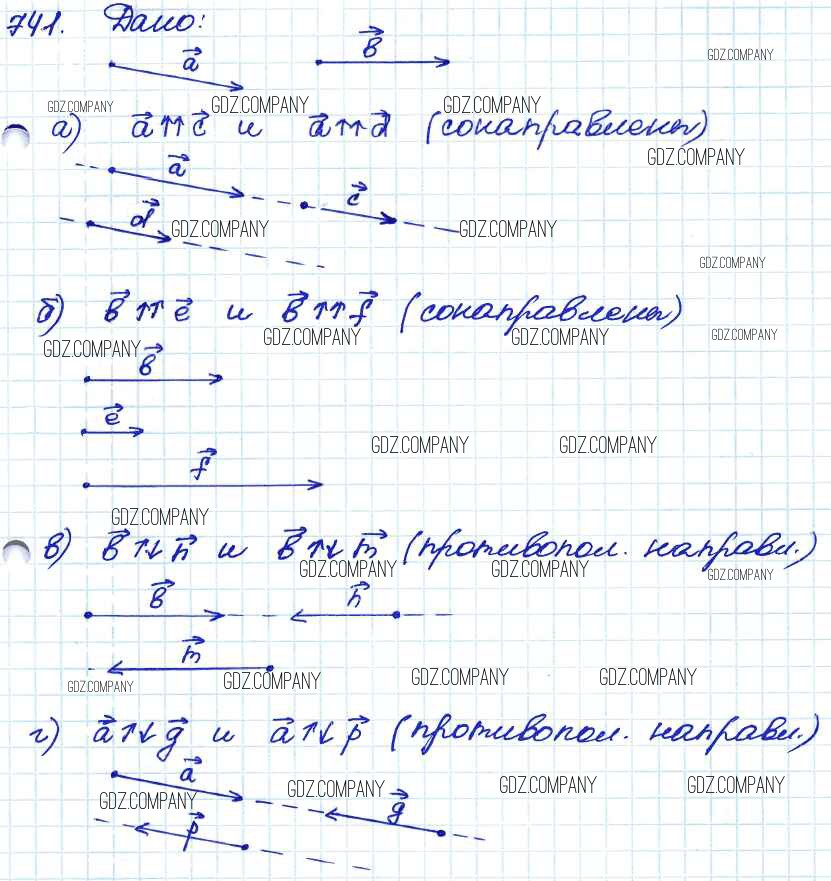 741. Дано:
a⃗ b⃗
GDZ.COMPANY
GDZ.COMPANY GDZ.COMPANY GDZ.COMPANY
а) a⃗ ↑↑ c⃗ и a⃗ ↑↑ d⃗ (сонаправлены)
GDZ.COMPANY
a⃗
c⃗
d⃗ GDZ.COMPANY GDZ.COMPANY
GDZ.COMPANY
б) b⃗ ↑↑ e⃗ и b⃗ ↑↑ f⃗ (сонаправлены)
GDZ.COMPANY GDZ.COMPANY GDZ.COMPANY GDZ.COMPANY
b⃗
e⃗
GDZ.COMPANY GDZ.COMPANY
f⃗
GDZ.COMPANY
в) b⃗ ↑↓ n⃗ и b⃗ ↑↓ m⃗ (противопол. направл.)
GDZ.COMPANY GDZ.COMPANY GDZ.COMPANY
b⃗ n⃗
m⃗
GDZ.COMPANY GDZ.COMPANY GDZ.COMPANY GDZ.COMPANY
г) a⃗ ↑↓ g⃗ и a⃗ ↑↓ p⃗ (противопол. направл.)
a⃗
GDZ.COMPANY GDZ.COMPANY GDZ.COMPANY GDZ.COMPANY
g⃗
p⃗